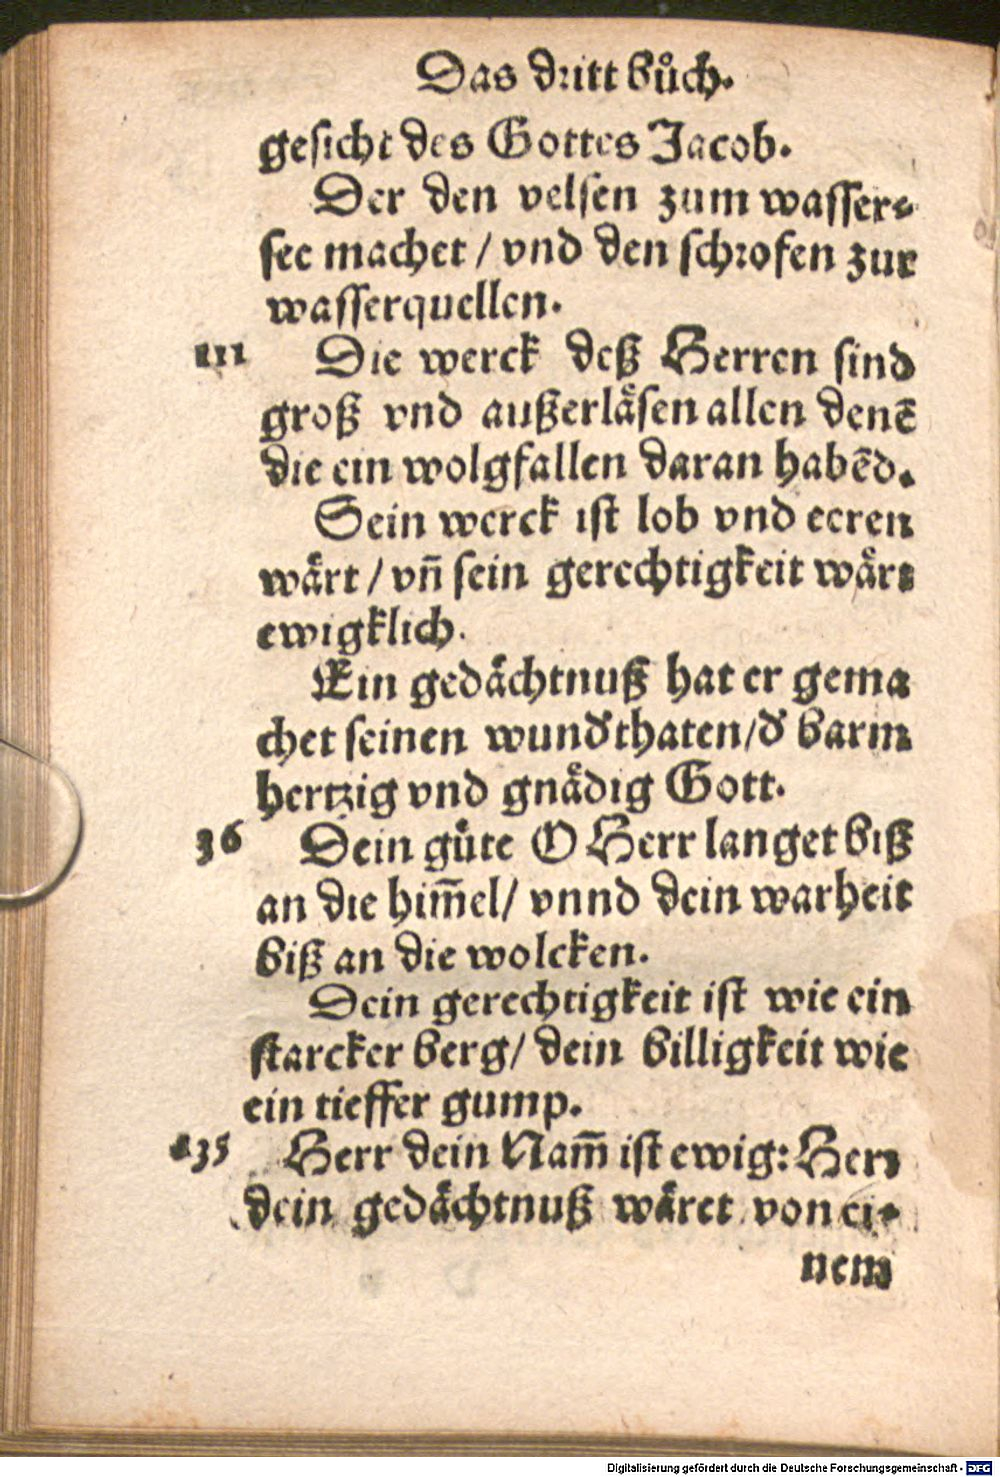 Das dritt bůch.
gesicht des Gottes Jacob.
Der den velsen zum wasser⸗
see machet / vnd den schrofen zur
wasserquellen.
111 Die werck deß Herren sind
groß vnd außerläsen allen denẽ
die ein wolgfallen daran habẽd.
Sein werck ist lob vnd eeren
wärt / vñ sein gerechtigkeit wärt
ewigklich.
Ein gedächtnuß hat er gema
chet seinen wund'thaten/d' barm
hertzig vnd gnädig Gott.
36 Dein güte O Herr langet biß
an die him̃el/ vnnd dein warheit
biß an die wolcken.
Dein gerechtigkeit ist wie ein
starcker berg/ dein billigkeit wie
ein tieffer gump.
135 Herr dein Nam̃ ist ewig: Herr
dein gedächtnuß wäret von ei⸗
nem
Digitalisierung gefördert durch die Deutsche Forschungsgemeinschaft - DFG